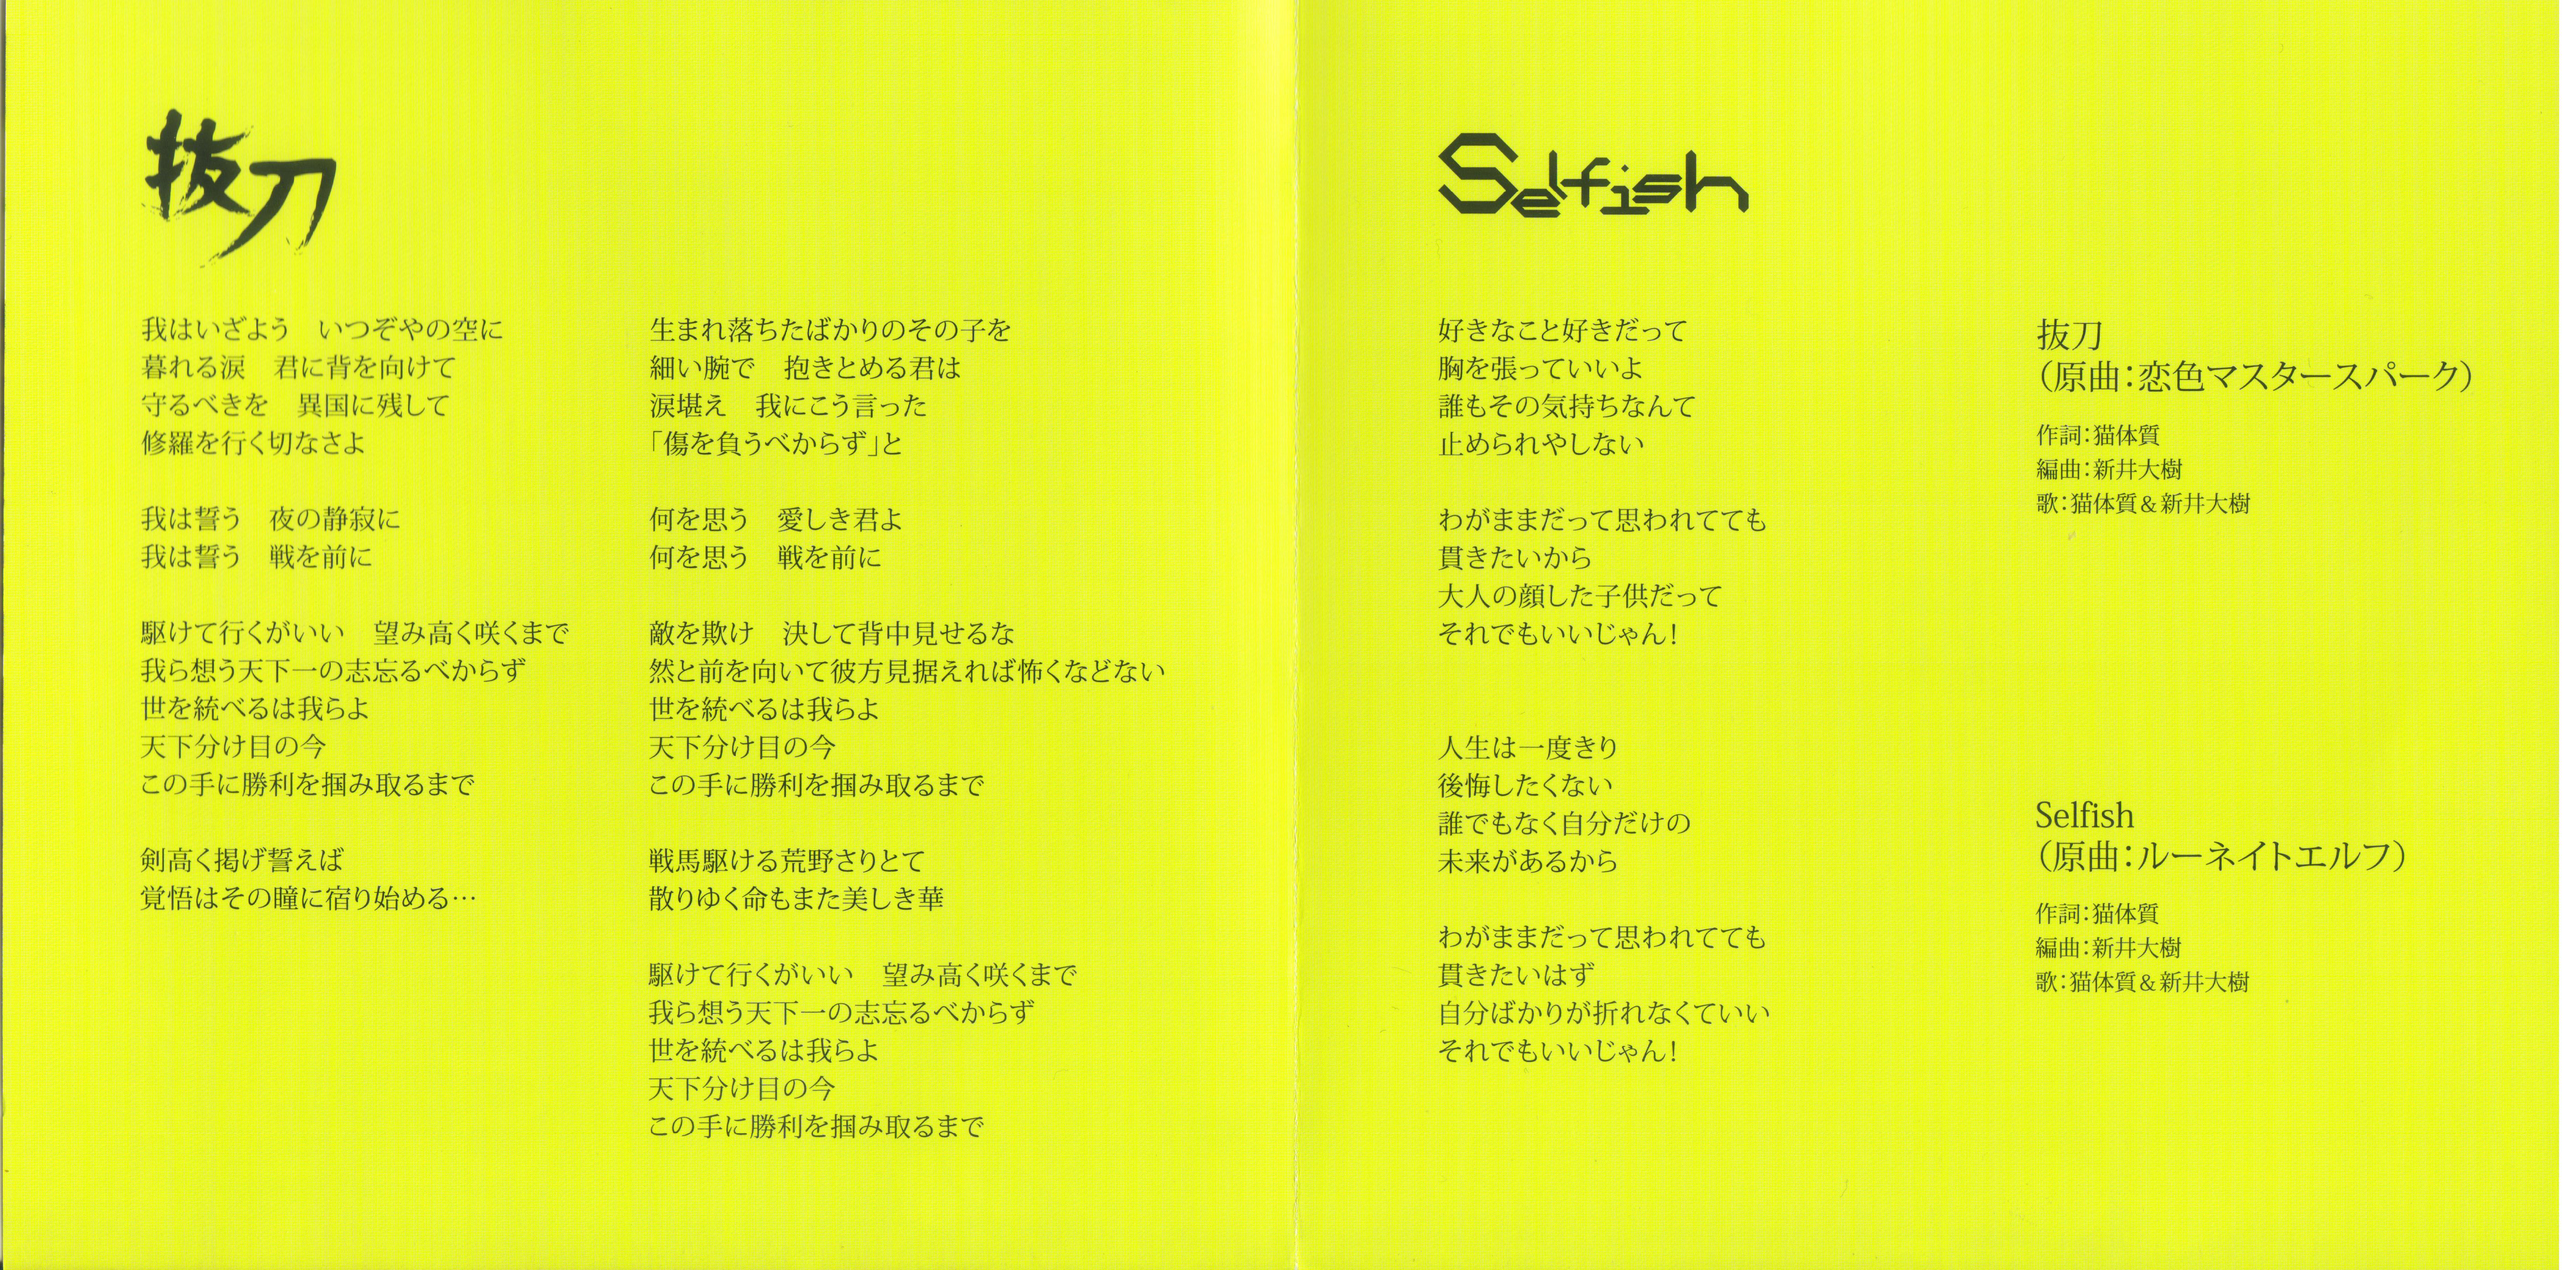 抜刀
我はいざよう　いつぞやの空に
暮れる涙　君に背を向けて
守るべきを　異国に残して
修羅を行く切なさよ
我は誓う　夜の静寂に
我は誓う　戦を前に
駆けて行くがいい　望み高く咲くまで
我ら想う天下一の志忘るべからず
世を統べるは我らよ
天下分け目の今
この手に勝利を掴み取るまで
剣高く掲げ誓えば
覚悟はその瞳に宿り始める…
生まれ落ちたばかりのその子を
細い腕で　抱きとめる君は
涙堪え　我にこう言った
「傷を負うべからず」と
何を思う　愛しき君よ
何を思う　戦を前に
敵を欺け　決して背中見せるな
然と前を向いて彼方見据えれば怖くなどない
世を統べるは我らよ
天下分け目の今
この手に勝利を掴み取るまで
戦馬駆ける荒野さりとて
散りゆく命もまた美しき華
駆けて行くがいい　望み高く咲くまで
我ら想う天下一の志忘るべからず
世を統べるは我らよ
天下分け目の今
この手に勝利を掴み取るまで
Selfish
好きなこと好きだって
胸を張っていいよ
誰もその気持ちなんて
止められやしない
わがままだって思われてても
貫きたいから
大人の顔した子供だって
それでもいいじゃん！
人生は一度きり
後悔したくない
誰でもなく自分だけの
未来があるから
わがままだって思われてても
貫きたいはず
自分ばかりが折れなくていい
それでもいいじゃん！
抜刀
（原曲：恋色マスタースパーク）
作詞：猫体質
編曲：新井大樹
歌：猫体質＆新井大樹
Selfish
（原曲：ルーネイトエルフ）
作詞：猫体質
編曲：新井大樹
歌：猫体質＆新井大樹